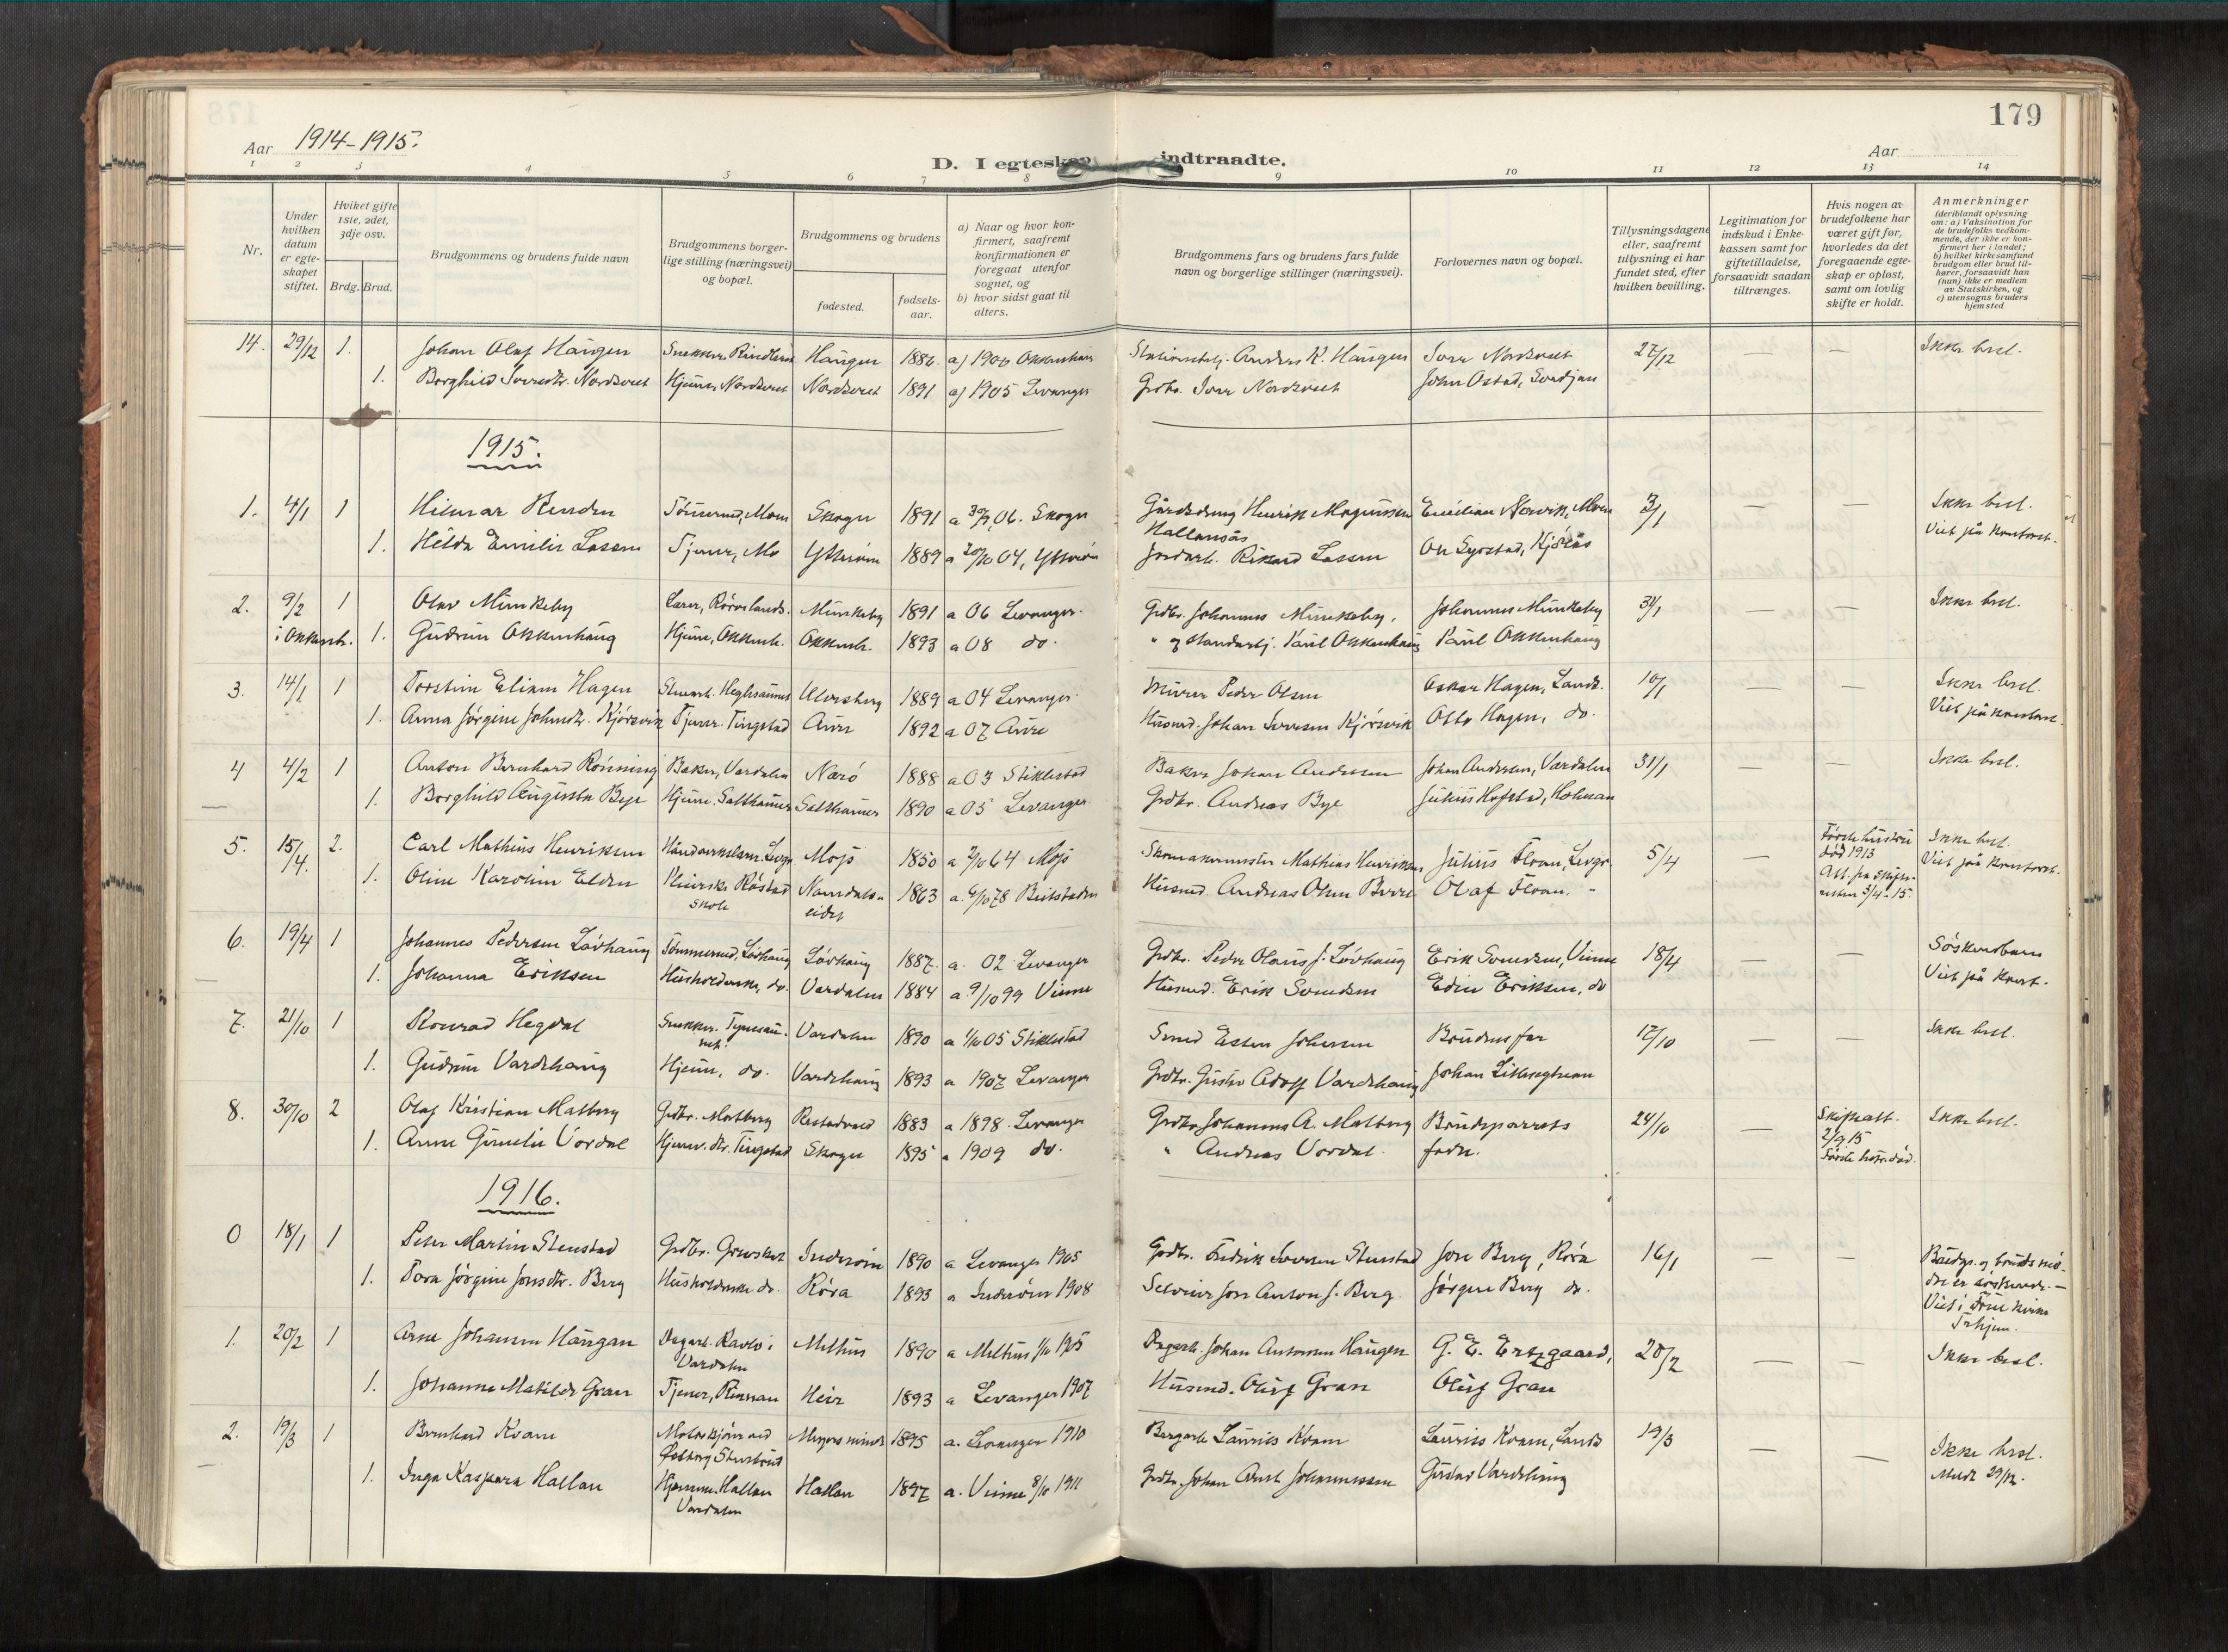 179
Aar 1914-1915.
D. I egteskap indtraadte.
Aar
1 2 3 4 5 6 7 8 9 10 11 12 13 14
Nr.
Under hvilken datum er egteskapet stiftet.
Hviket gifte 1ste, 2det, 3dje osv.
Brdg. Brud.
Brudgommens og brudens fulde navn
Brudgommens borgerlige stilling (næringsvei) og bopæl.
Brudgommens og brudens
fødested.
fødselsaar.
a) Naar og hvor konfirmert, saafremt konfirmationen er foregaat utenfor sognet, og
b) hvor sidst gaat til alters.
Brudgommens fars og brudens fars fulde navn og borgerlige stillinger (næringsvei).
Forlovernes navn og bopæl.
Tillysningsdagene eller, saafremt tillysning ei har fundet sted, efter hvilken bevilling.
Legitimation for indskud i Enkekassen samt for giftetilladelse, forsaavidt saadan tiltrænges.
Hvis nogen av brudefolkene har været gift før, hvorledes da det foregaaende egteskap er opløst, samt om lovlig skifte er holdt.
Anmerkninger
(deriblandt oplysning om: a) Vaksination for de brudefolks vedkommende, der ikke er konfirmert her i landet;
b) hvilket kirkesamfund brudgom eller brud tilhører, forsaavidt han (hun) ikke er medlem av Statskirken, og
c) utensogns bruders hjemsted
14. 29/12 1. Johan Olaf Haugen Haugen 1886 a) 1900 Okkenhaug Andreas K. Haugen Sivert Nordsvet 27/12 — — Ikke besl.
1. Borghild Nordsvet Hjem. Nordsvet Nordsvet 1891 a) 1905 Levanger Grdbr. Nordsvet John Ostad,
1915.
1. 4/1 1 Hilmar Renden Mom Skogn 1891 a 06. Skogn Henrik Magnussen Hallanås Norvik, Moen 3/1 — — Ikke besl.
1. Hilda Emilie Lassen Tjener, Mo Ytterøen 1889 a 04, Ytterøen Jordarb. Rikard Lassen Kjölås Viet på kontoret.
2. 9/2 1 Olav Munkeby Lærer, Munkeby 1891 a 06 Levanger. Grdbr. Johannes Munkeby. Johannes Munkeby 31/1 — — Ikke besl.
i Okkenh. 1. Gudrun Okkenhaug Hjem., Okkenh. Okkenh. 1893 a 08 do. " og Handelsbj. Paul Okkenhaug Paul Okkenhaug
3. 14/1 1 Torstein Hagen 1889 a 04 Levanger Murer Peder Olsen Oskar Hagen, 10/1 — — Ikke besl.
1. Anna Jørgine Johnsdtr. Kjørsvik Tjener. Tingstad Aure 1892 a 07 Aure Husmd. Johan Kjørsvik Otto Hagen, do. Viet på kontoret.
4 4/2 1 Anton Bernhard Rönning Baker, Værdalen Nærö 1888 a 03 Stiklestad Baker Johan Andersen Johan Andersen, Værdalen 31/1 — — Ikke besl.
1. Borghild Augusta Bye Hjem. Salthamer Salthamer 1890 a 05 Levanger Grdbr. Andreas Bye Julius Hofstad, Holman
5. 15/4. 2. Carl Mathius Henriksen Mosjö 1850 a 64 Mosjö Skomakermester Mathias Henriksen Julius Floan, Levgr. 5/4 — Første hustru død 1913 Ikke besl.
1. Oline Karoline Elden Røstad skole Namdalseidet 1863 a. 78 Beitstaden Husmd. Andreas Olsen Olaf Floan. " Att. fra skifteretten 3/4-15 Viet på kontoret.
6. 19/4 1 Johannes Pedersen Lövhaug Tömmermd. Lövhaug Lövhaug 1887. a. 02 Levanger Grdbr. Peder Olaus J. Lövhaug Erik Svendsen, Vinne 18/4 — — Söskendbarn
1. Johanna Eriksen Husholderske, do. Værdalen 1884 a. 9/10 99 Vinne Husmd. Erik Svendsen Edin Eriksen, do Viet på kont.
7. 21/10 1 Konrad Hegdal Snekker. Værdalen 1890 a 1/10 05 Stiklestad Smed Esten Johansen Brudens far 17/10 — — Ikke besl.
1. Gudrun Vardehaug Hjem., do. Vardehaug 1893 a 1907 Levanger Grdbr. Gustav Adolf Vardehaug Johan
8. 30/10 2 Olaf Kristian Matberg Grdbr. Matberg 1883 a 1898. Levanger Grdbr. Johannes A. Matberg Brudeparrets 24/10 — Skifteatt. 2/9 15 Ikke besl.
1. Anne Gunelie Vordal Hjemv. dtr. Tingstad Skogn 1895 a 1909 do. " Andreas Vordal. fedre. Første hustr. død.
1916.
0 18/1 1 Peter Martin Stenstad Grdbr. Inderøen 1890 a Levanger 1905 Grdbr. Fredrik Stenstad Jon Berg, Röra 16/1 — — Brudgr. og bruds mödre er söskende. —
1. Tora Jörgine Jonsdtr. Berg Husholderske do. Röra 1893 a Inderøen 1908 Selveier Jon Anton J. Berg. Jörgen Berg do. Viet i Frue kirke Trhjem.
1. 20/2 1 Arne Johannes Haugan Dagarb. i Værdalen Melhus 1890 a Melhus 1905 Dagarb. Johan Antonsen Haugen G. E. Ertzgaard, 20/2 — — Ikke besl.
1. Johanna Matilde Gran Tjener, Rinnan Heir 1893 a Levanger 1907 Husmd. Oluf Gran Oluf Gran
2. 19/3 1 Bernhard Kvam 1895 a. Levanger 1910 Laurits Kvam Laurits Kvam, 19/3 — — Ikke besl.
1. Inga Kaspara Hallan Hjemme. Hallan Værdalen Hallan 1897 a. Vinne 8/10 1911 Grdbr. Johan Arnt Johannessen Gustav Vardehaug